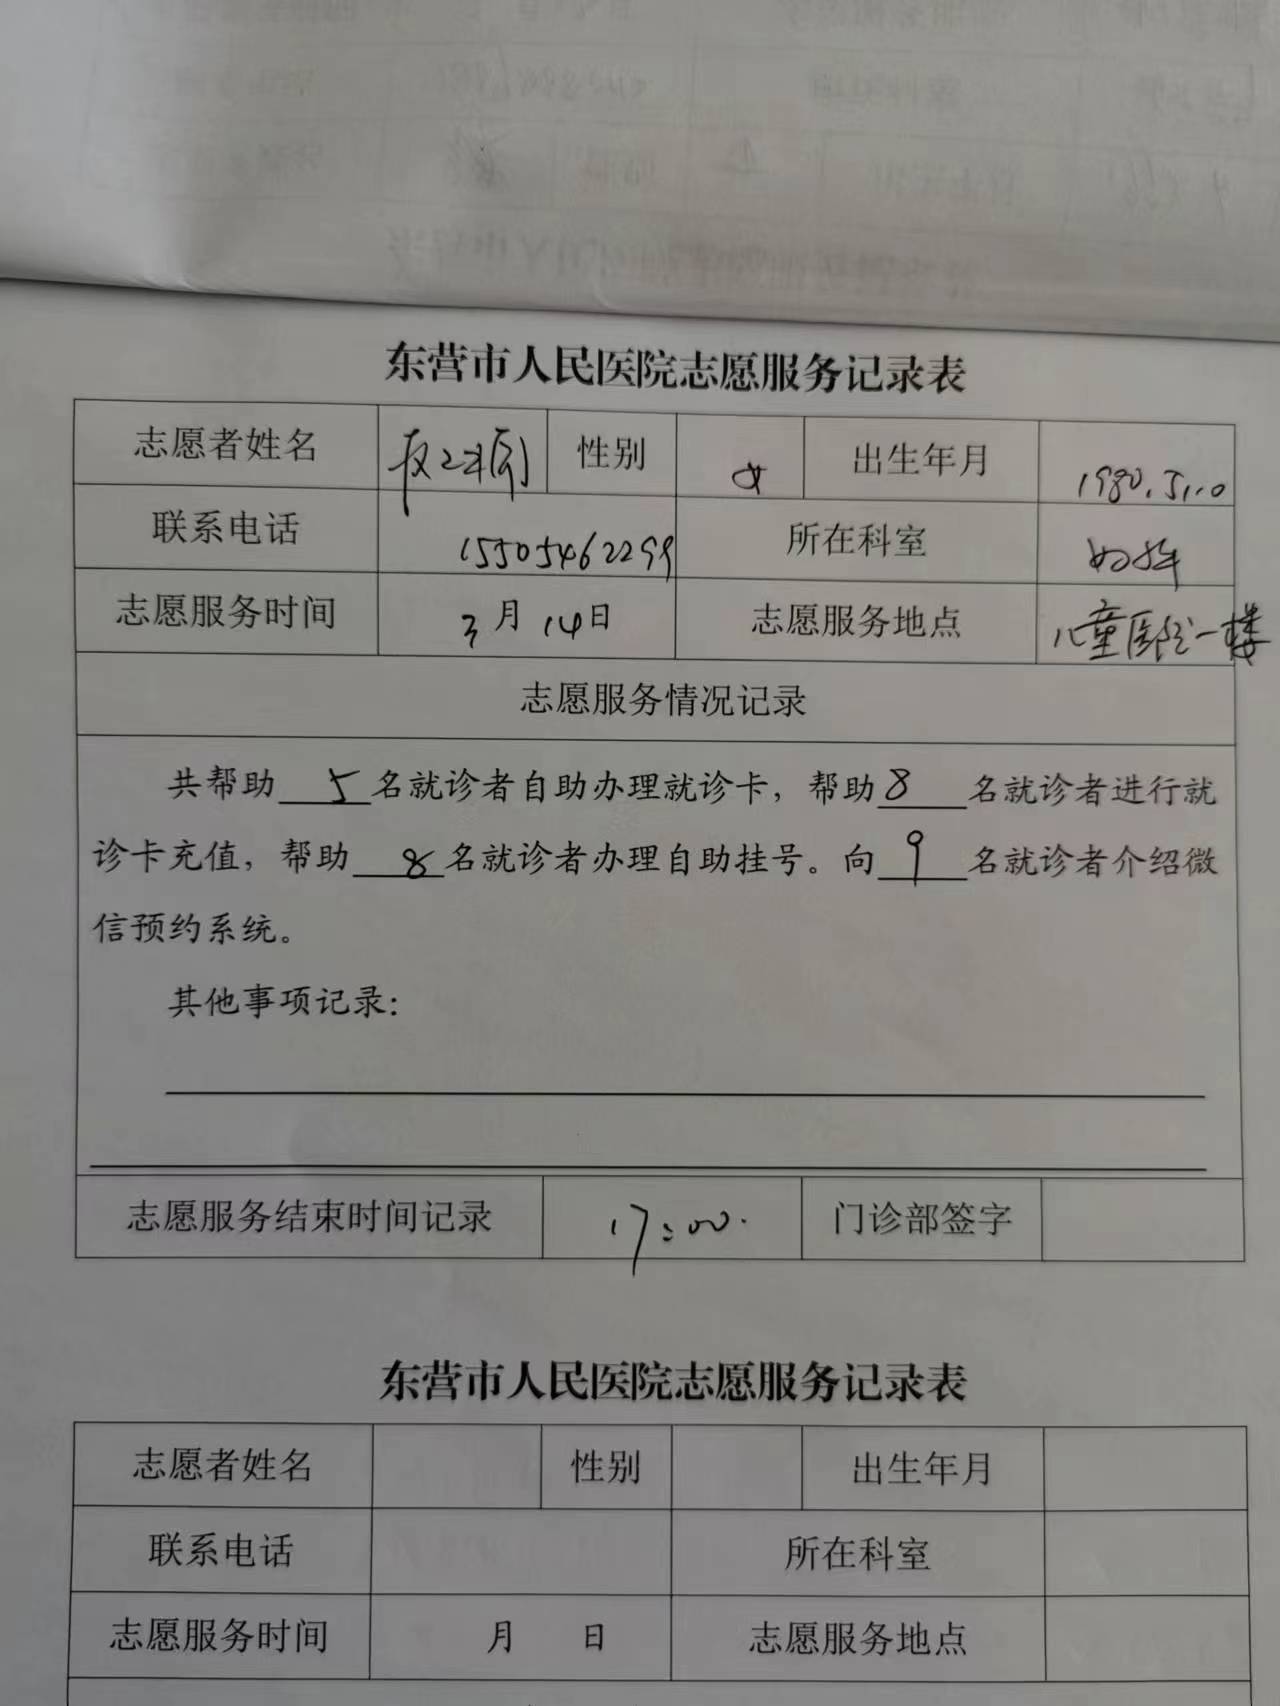 东营市人民医院志愿服务记录表
志愿者姓名 性别 女 出生年月 1980.5.10
联系电话 15505462299 所在科室 妇科
志愿服务时间 3月14日 志愿服务地点 儿童医院一楼
志愿服务情况记录
共帮助 5 名就诊者自助办理就诊卡，帮助 8 名就诊者进行就
诊卡充值，帮助 8 名就诊者办理自助挂号。向 9 名就诊者介绍微
信预约系统。
其他事项记录：
志愿服务结束时间记录 17:00. 门诊部签字
东营市人民医院志愿服务记录表
志愿者姓名 性别 出生年月
联系电话 所在科室
志愿服务时间 月 日 志愿服务地点